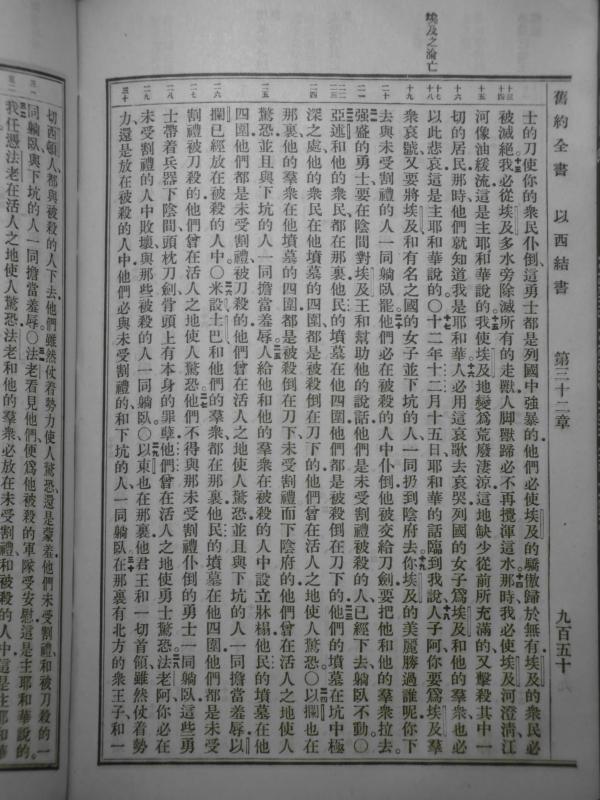 埃及之淪亡
舊約全書 以西結書 第三十二章 九百五十
士的刀使你的衆民仆倒這勇士都是列國中強暴的他們必使埃及的驕傲歸於無有埃及的衆民必
被滅絕我必從埃及多水旁除滅所有的走獸人脚獸蹄必不再攪渾這水那時我必使埃及河澄清江
河像油緩流這是主耶和華說的我使埃及地變爲荒廢淒涼這地缺少從前所充滿的又擊殺其中一
切的居民那時他們就知道我是耶和華人必用這哀歌去哀哭列國的女子爲埃及和他的羣衆也必
以此悲哀這是主耶和華說的〇十二年十二月十五日耶和華的話臨到我說人子阿你要爲埃及羣
衆哀號又要將埃及和有名之國的女子並下坑的人一同扔到陰府去你埃及的美麗勝過誰呢你下
去與未受割禮的人一同躺臥罷他們必在被殺的人中仆倒他被交給刀劍要把他和他的羣衆拉去
强盛的勇士要在陰間對埃及王和幫助他的說話他們是未受割禮被殺的人已經下去躺臥不動〇
亞述和他的衆民都在那裏他民的墳墓在他四圍他們都是被殺倒在刀下的他們的墳墓在坑中極
深之處他的衆民在他墳墓的四圍都是被殺倒在刀下的他們曾在活人之地使人驚恐〇以攔也在
那裏他的羣衆在他墳墓的四圍都是被殺倒在刀下未受割禮而下陰府的他們曾在活人之地使人
驚恐並且與下坑的人一同擔當羞辱人給他和他的羣衆在被殺的人中設立牀榻他民的墳墓在他
四圍他們都是未受割禮被刀殺的他們曾在活人之地使人驚恐並且與下坑的人一同擔當羞辱以
攔已經放在被殺的人中〇米設土巴和他們的羣衆都在那裏他民的墳墓在他四圍他們都是未受
割禮被刀殺的他們曾在活人之地使人驚恐他們不得與那未受割禮仆倒的勇士一同躺臥這些勇
士帶着兵器下陰間頭枕刀劍骨頭上有本身的罪孽他們曾在活人之地使勇士驚恐法老阿你必在
未受割禮的人中敗壞與那些被殺的人一同躺臥〇以東也在那裏他君王和一切首領雖然仗着勢
力還是放在被殺的人中他們必與未受割禮的和下坑的人一同躺臥在那裏有北方的衆王子和一
切西頓人都與被殺的人下去他們雖然仗着勢力使人驚恐還是蒙羞他們未受割禮和被刀殺的一
同躺臥與下坑的人一同擔當羞辱〇法老看見他們便爲他被殺的軍隊受安慰這是主耶和華說的
我任憑法老在活人之地使人驚恐法老和他的羣衆必放在未受割禮和被殺的人中這是主耶和華